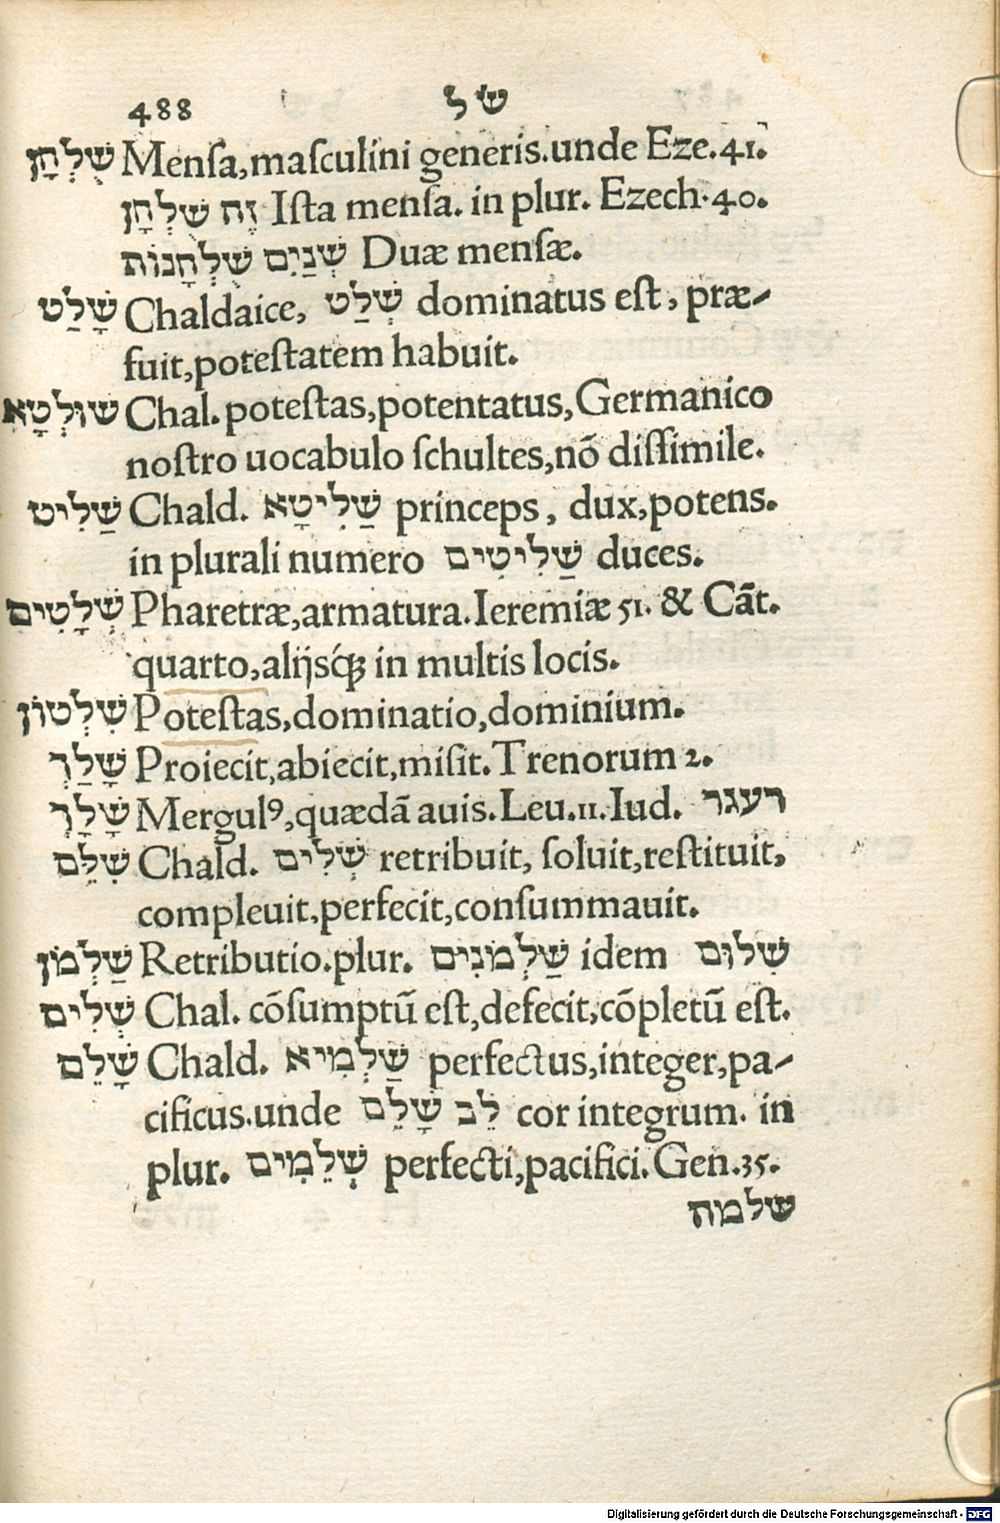 488 של
שֻׁלְחָן Menſa,maſculini generis.unde Eze.41.
זֶה שׁלְחָן Iſta menſa. in plur. Ezech.40.
שְׁנַיִם שֻׁלְחָנוֹת Duæ menſæ.
שָׁלַט Chaldaice, שְׁלַט dominatus eſt, præ-
fuit,poteſtatem habuit.
שׁוּלְטָא Chal. poteſtas,potentatus,Germanico
noſtro uocabulo ſchultes,nõ diſſimile.
שַׁלִיט Chald. שַׁלִיטָא princeps, dux,potens.
in plurali numero שַׁלִיטִים duces.
שְׁלָטִים Pharetræ,armatura.Ieremiæ 51. & Cãt.
quarto,alijsq́ꝫ in multis locis.
שִׁלְטוֹן Poteſtas,dominatio,dominium.
שָׁלַךְ Proiecit,abiecit,miſit.Trenorum 2.
שָׁלָךְ Mergulꝰ,quædã auis.Leu.11.Iud. רעגר
שִׁלֵּם Chald. שְׁלִים retribuit, ſoluit,reſtituit,
compleuit,perfecit,conſummauit.
שַׁלְמֹן Retributio.plur. שַׁלְמֹנִים idem שִׁלוּם
שְׁלִים Chal. cõſumptũ eſt,defecit,cõpletũ eſt.
שָׁלֵם Chald. שַׁלְמִיא perfectus,integer,pa-
cificus.unde לֵב שָׁלֵם cor integrum. in
plur. שְׁלֵמִים perfecti,pacifici.Gen.35.
שלמה
Digitalisierung gefördert durch die Deutsche Forschungsgemeinschaft - DFG